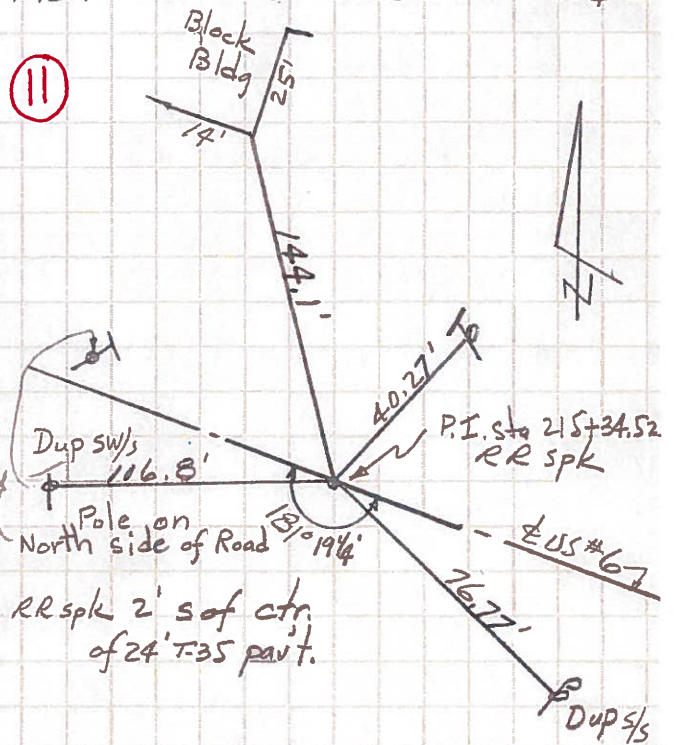 11
Block
Bldg
25'
14'
144.1'
40.27'
P.I. sta 215+34.52
RR spk
Dup sw/s
106.8'
Pole on
North side of Road
181° 19¼'
℄ US #6
76.77'
RR spk 2' s of ctr.
of 24' T-35 pav't.
Dup s/s
N